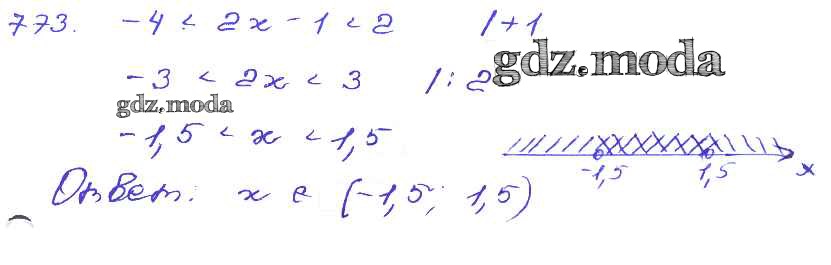 773. -4 < 2x - 1 < 2 / +1
gdz.moda
-3 < 2x < 3 / : 2
gdz.moda
-1,5 < x < 1,5
-1,5 1,5 x
Ответ: x ∈ (-1,5; 1,5)